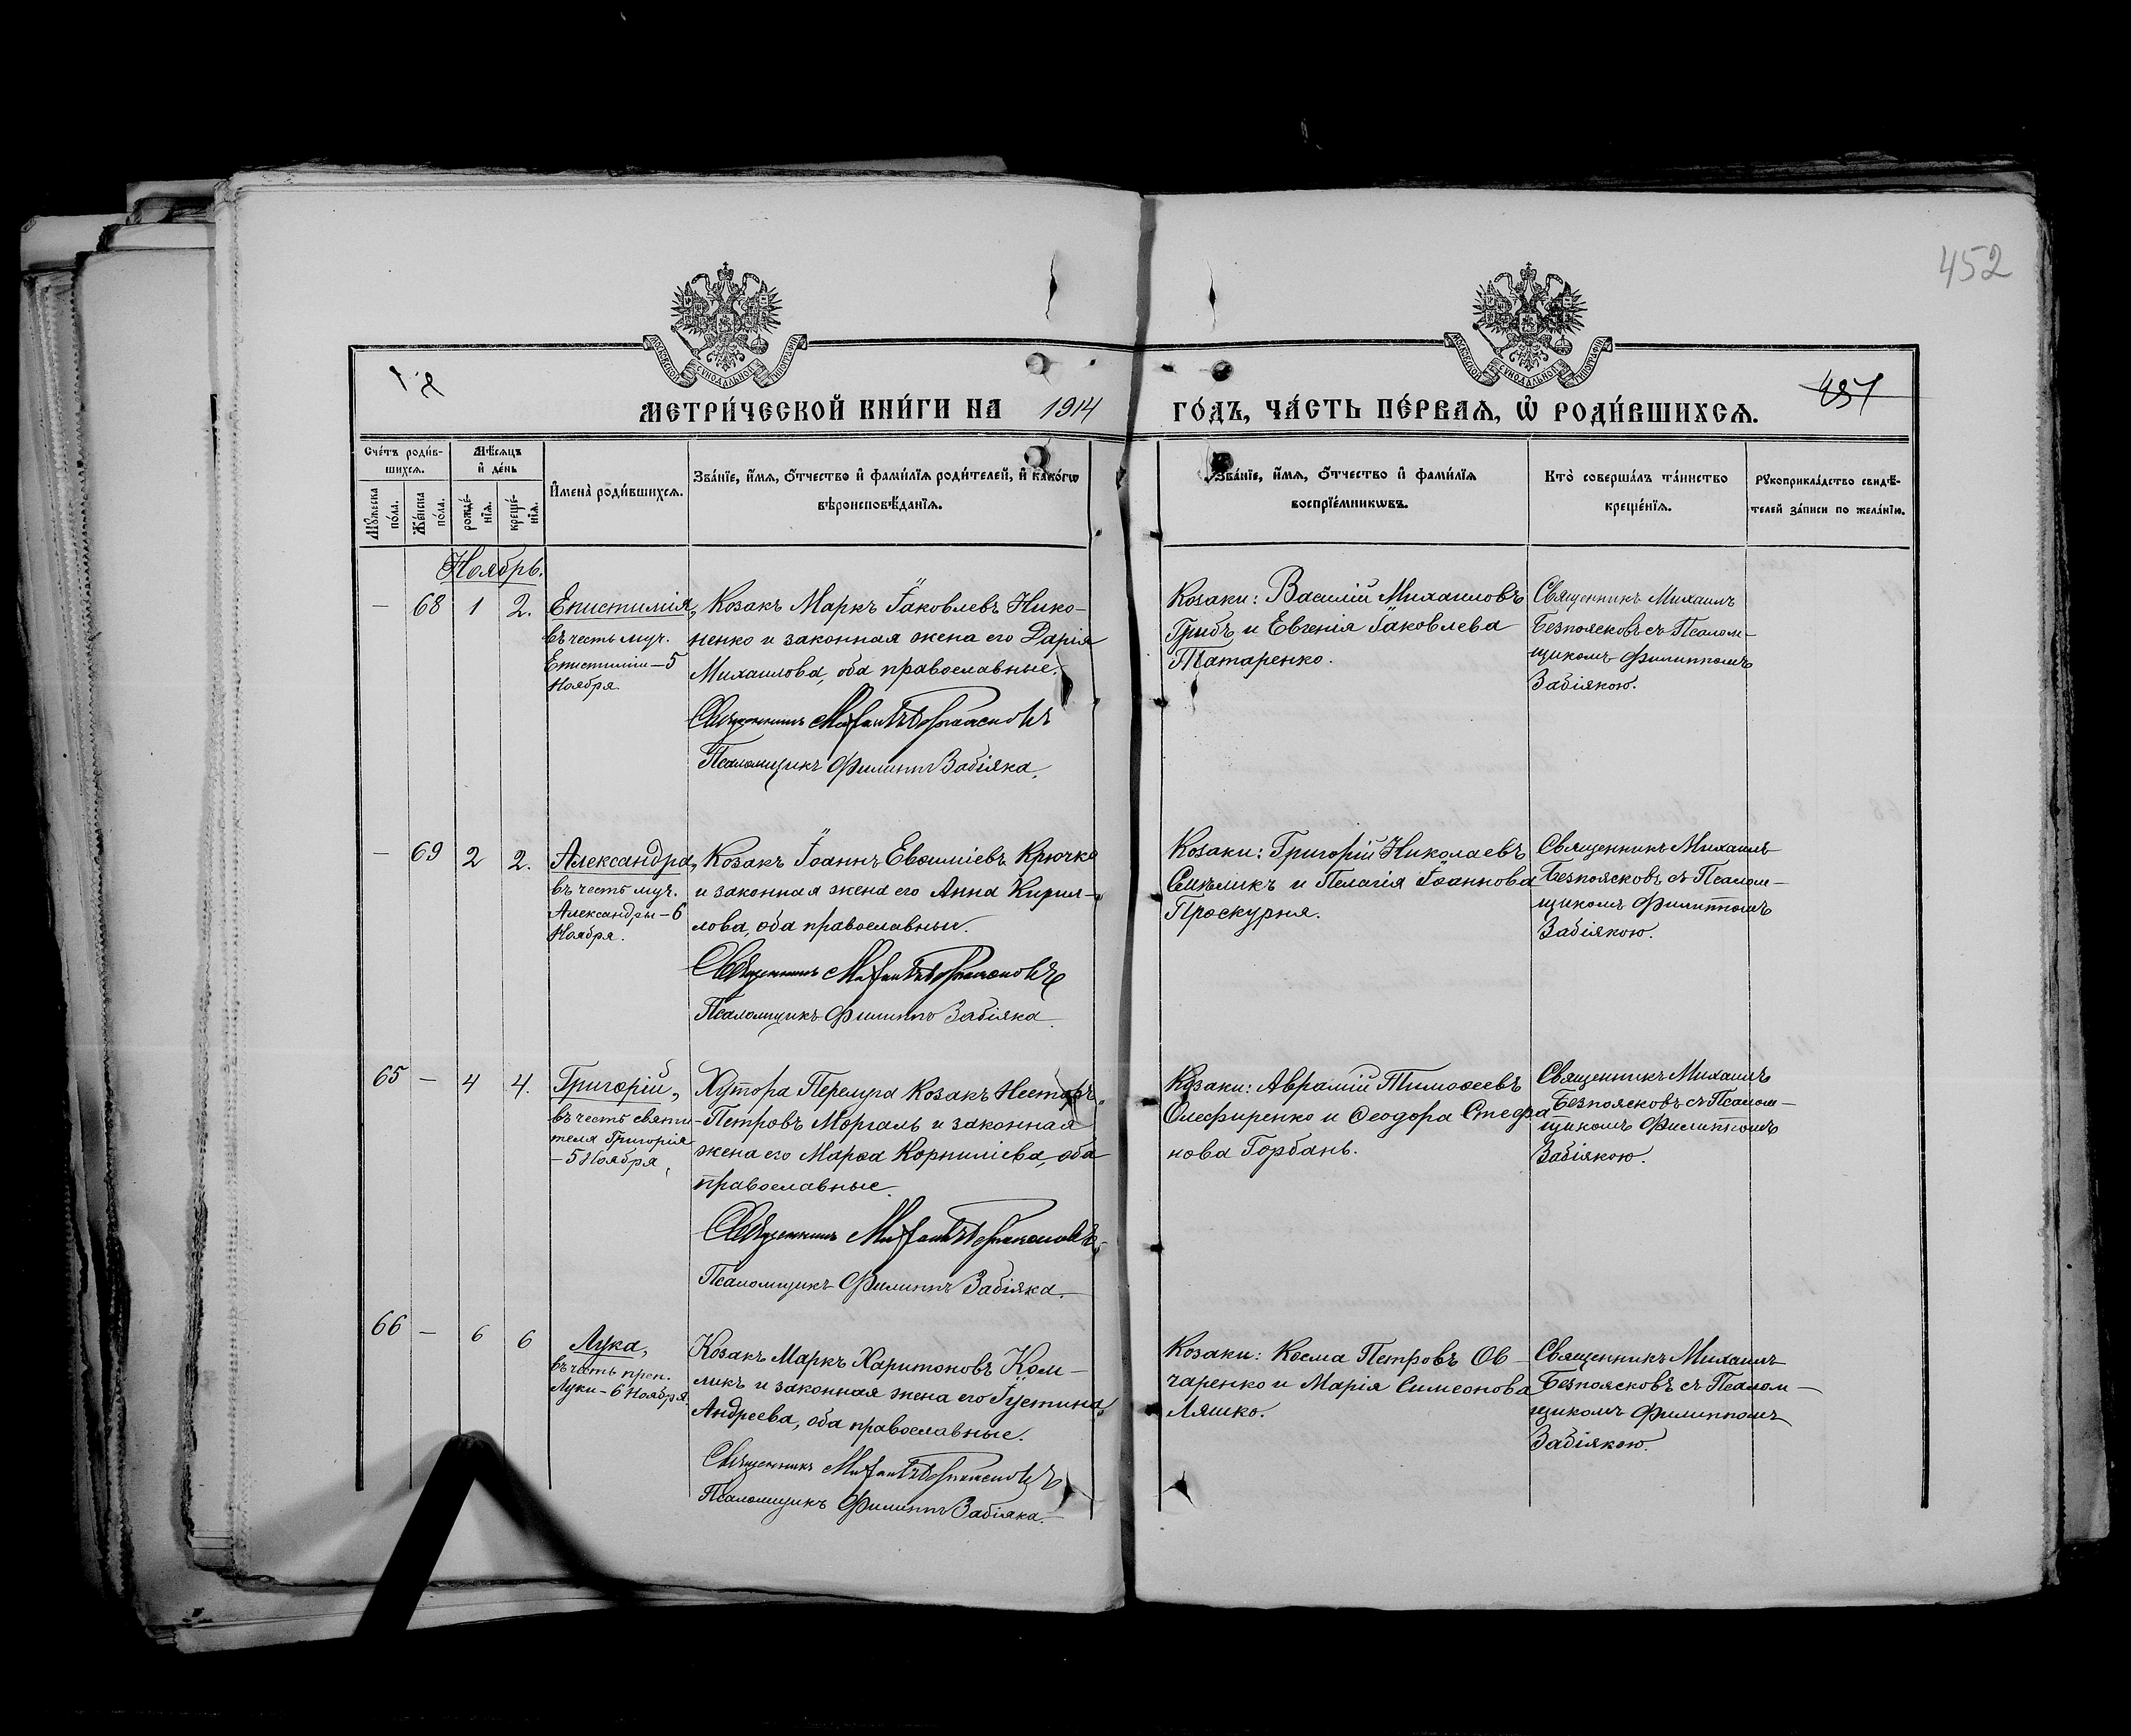 452
МОСКОВСКОЙ СѴНОДАЛЬНОЙ ТИПОГРАФІИ
МОСКОВСКОЙ СѴНОДАЛЬНОЙ ТИПОГРАФІИ
451
МЕТРИ́ЧЕСКОЙ КНИ́ГИ НА 1914 ГО́ДЪ, ЧА́СТЬ ПЕ́РВАѦ, Ѡ҆ РОДИ́ВШИХСѦ.
Сче́тъ роди́в-
шихсѧ.
Мѣ́сѧцъ
и҆ де́нь
Мꙋ́жеска
по́ла.
Же́нска
по́ла.
рожде́-
нїѧ.
креще́-
нїѧ.
И҆мена̀ роди́вшихсѧ.
Зва́нїе, и҆́мѧ, ѻ҆́тчество и҆ фами́лїѧ роди́телей, и҆ како́гѡ
вѣроисповѣ́данїѧ.
Зва́нїе, и҆́мѧ, ѻ҆́тчество и҆ фами́лїѧ
воспрїе́мникѡвъ.
Кто̀ соверша́лъ та́инство
креще́нїѧ.
Рꙋкоприкла́дство свидѣ́-
телей за́писи по жела́нїю.
Ноябрь.
— 68 1 2.
Епистимія,
въ честь муч.
Епистиміи – 5
Ноября.
Козакъ Маркъ Іаковлевъ Нико-
ненко и законная жена его Дарія
Михаилова, оба православные.
Священникъ Михаилъ Безпоясковъ
Псаломщикъ Филиппъ Забіяка.
Козаки: Василій Михаиловъ
Грибъ и Евгенія Іаковлева
Татаренко.
Священникъ Михаилъ
Безпоясковъ съ Псалом-
щикомъ Филиппомъ
Забіякою.
— 69 2 2.
Александра,
въ честь муч.
Александры – 6
Ноября.
Козакъ Іоаннъ Евѳиміевъ Крючко
и законная жена его Анна Кирил-
лова, оба православные.
Священникъ Михаилъ Безпоясковъ
Псаломщикъ Филиппъ Забіяка.
Козаки: Григорій Николаевъ
Смѣликъ и Пелагія Іоаннова
Проскурня.
Священникъ Михаилъ
Безпоясковъ съ Псалом-
щикомъ Филиппомъ
Забіякою.
65 — 4 4.
Григорій,
въ честь святи-
теля Григорія
– 5 Ноября.
Хутора Перелуга Козакъ Несторъ
Петровъ Моргаль и законная
жена его Марѳа Корниліева, оба
православные.
Священникъ Михаилъ Безпоясковъ
Псаломщикъ Филиппъ Забіяка.
Козаки: Аврамій Тимоѳеевъ
Олефиренко и Ѳеодора Стефа-
нова Горбань.
Священникъ Михаилъ
Безпоясковъ съ Псалом-
щикомъ Филиппомъ
Забіякою.
66 — 6 6
Лука,
въ честь преп.
Луки – 6 Ноября.
Козакъ Маркъ Харитоновъ Ком-
ликъ и законная жена его Іустина
Андреева, оба православные.
Священникъ Михаилъ Безпоясковъ
Псаломщикъ Филиппъ Забіяка.
Козаки: Косма Петровъ Ов-
чаренко и Марія Симеонова
Ляшко.
Священникъ Михаилъ
Безпоясковъ съ Псалом-
щикомъ Филиппомъ
Забіякою.